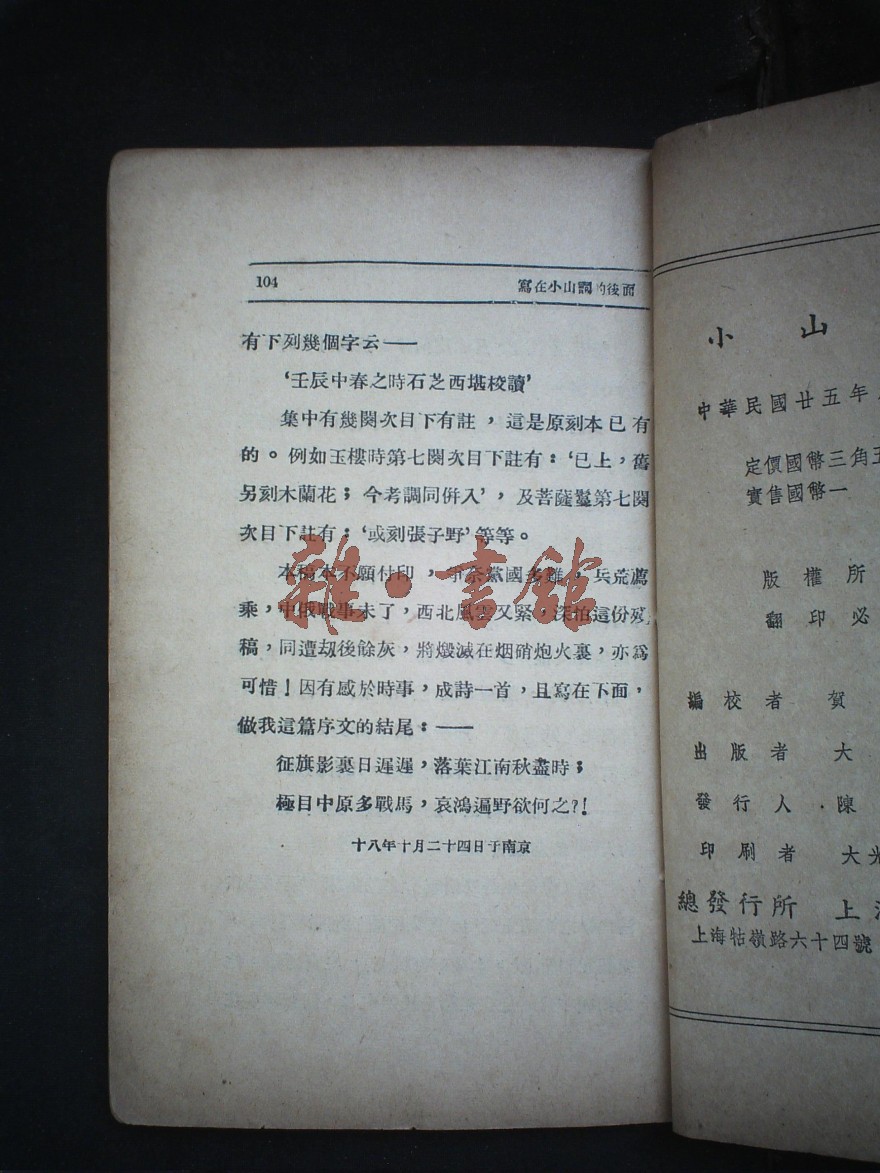 104
寫在小山詞的後面
有下列幾個字云——
‘壬辰中春之時石芝西堪校讀’
集中有幾闋次目下有註，這是原刻本已有
的。例如玉樓時第七闋次目下註有：‘已上，舊
另刻木蘭花；今考調同併入’，及菩薩鬘第七闋
次目下註有：‘或刻張子野’等等。
本稿本不願付印，奈黨國多難，兵荒薦
乘，中俄戰事未了，西北風雲又緊，深怕這份殘
稿，同遭刧後餘灰，將燬滅在烟硝炮火裏，亦爲
可惜！因有感於時事，成詩一首，且寫在下面，
做我這篇序文的結尾：——
征旗影裏日遲遲，落葉江南秋盡時；
極目中原多戰馬，哀鴻遍野欲何之？！
十八年十月二十四日于南京
雜·書館
小山
中華民國廿五年
定價國幣三角五
實售國幣一
版權所
翻印必
編校者 賀
出版者 大
發行人 陳
印刷者 大光
總發行所 上海
上海牯嶺路六十四號